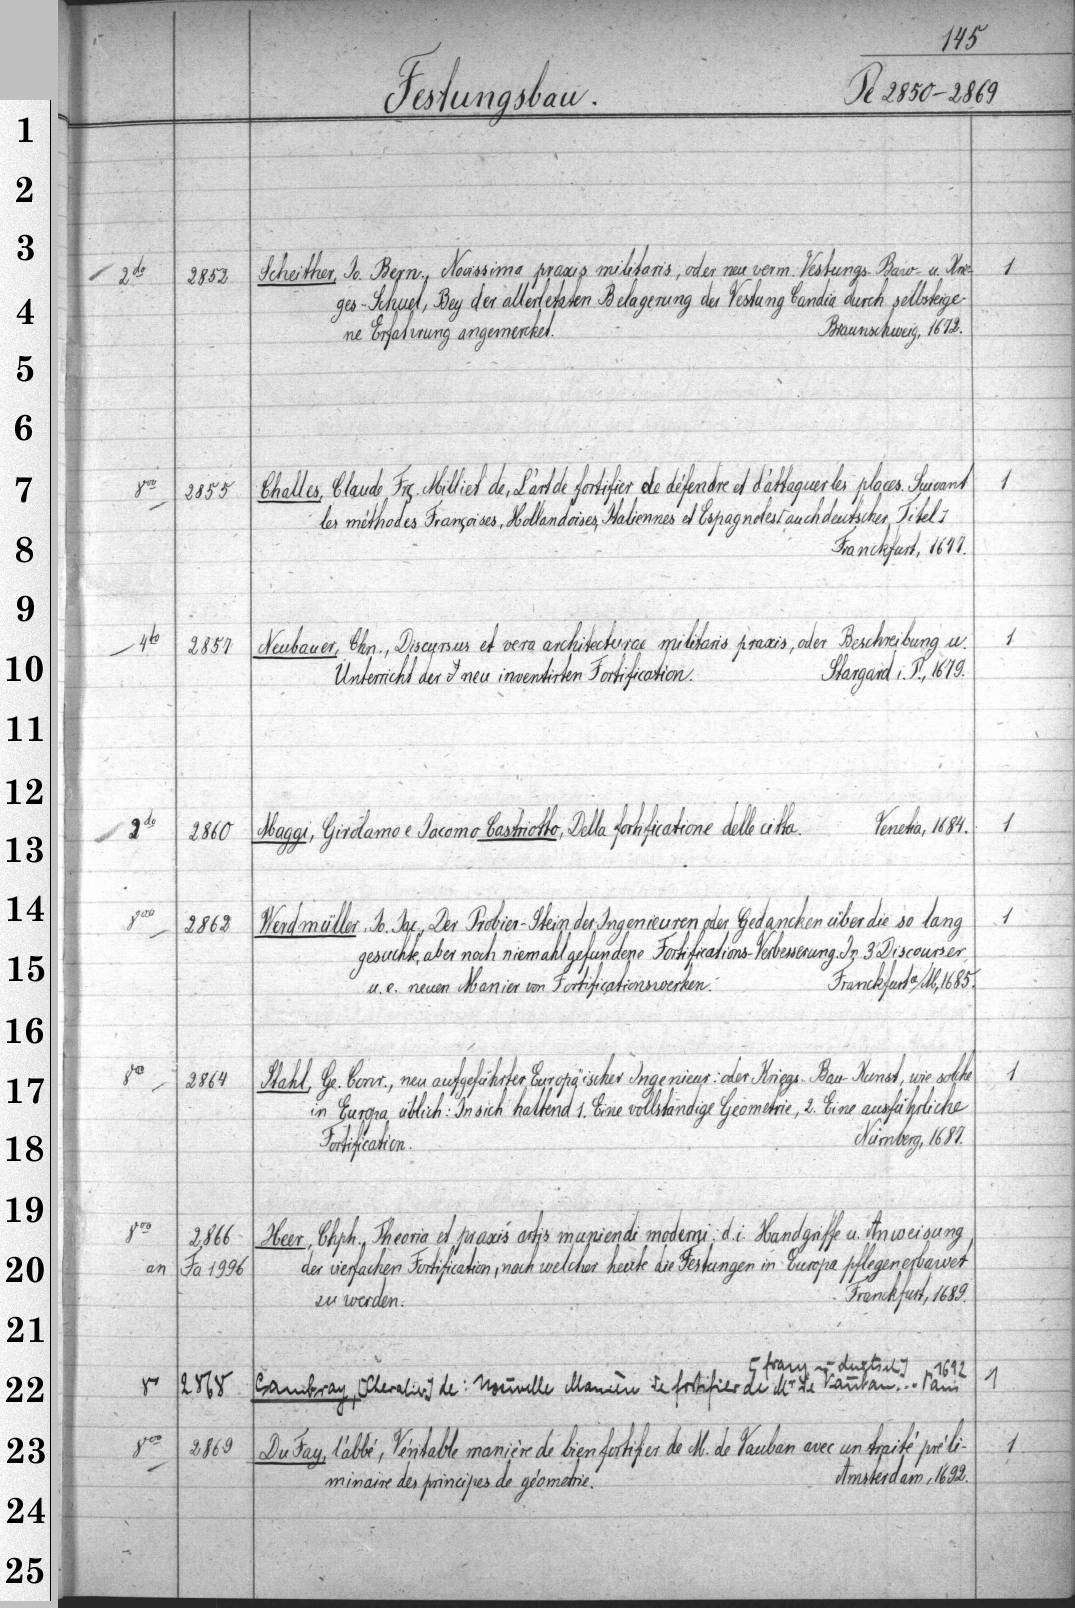 145
Festungsbau. Pe 2850-2869
1
2
3
2do 2852 Scheither, Jo. Bern., Novissima praxis militaris, oder neu verm. Vestungs-Baw- u. Krie- 1
4 ges-Schuel, Bey der allerletzten Belagerung der Vestung Candia durch selbsteige-
ne Erfahrung angemercket. Braunschweig, 1672.
5
6
7 8vo 2855 Challes, Claude Frç. Milliet de, L'art de fortifier de défendre et d'attaquer les places. Suivant 1
les méthodes Françoises, Hollandoises, Italiennes et Espagnoles [auch deutscher Titel]
8 Franckfurt, 1677.
9
4to 2857 Neubauer, Chn., Discursus et vera architecturae militaris praxis, oder Beschreibung u. 1
10 Unterricht der J neu inventirten Fortification. Stargard i. P., 1679.
11
12
2do 2860 Maggi, Girolamo e Jacomo Castriotto, Della fortificatione delle citta. Venetia, 1684. 1
13
14 8vo 2862 Werdmüller, Jo. Jac., Der Probier-Stein der Ingenieuren oder Gedancken über die so lang 1
gesuchte, aber noch niemahl gefundene Fortifications-Verbesserung. In 3 Discourser
15 u. e. neuen Manier von Fortificationswerken. Franckfurt a/M, 1685.
16
17 8vo 2864 Stahl, Ge. Conr., neu aufgeführter Europäischer Ingenieur: oder Kriegs-Bau-Kunst, wie solche 1
in Europa üblich: In sich haltend 1. Eine vollständige Geometrie, 2. Eine ausführliche
18 Fortification. Nürnberg, 1687.
19
8vo 2866 Heer, Chph., Theoria et praxis artis muniendi moderni; d. i. Handgriffe u. Anweisung
20 an Fa 1996 der vierfachen Fortification, nach welcher heute die Festungen in Europa pflegen erbawet
zu werden. Franckfurt, 1689.
21
[franz. - deutsch] 1692
22 8vo 2868 Cambray, [Chevalier] de: Nouvelle Manière de fortifier de Mr de Vauban... Paris 1
23 8vo 2869 Du Fay, l'abbé, Véritable manière de bien fortifier de M. de Vauban avec un traité préli- 1
minaire des principes de géometrie. Amsterdam, 1692.
24
25